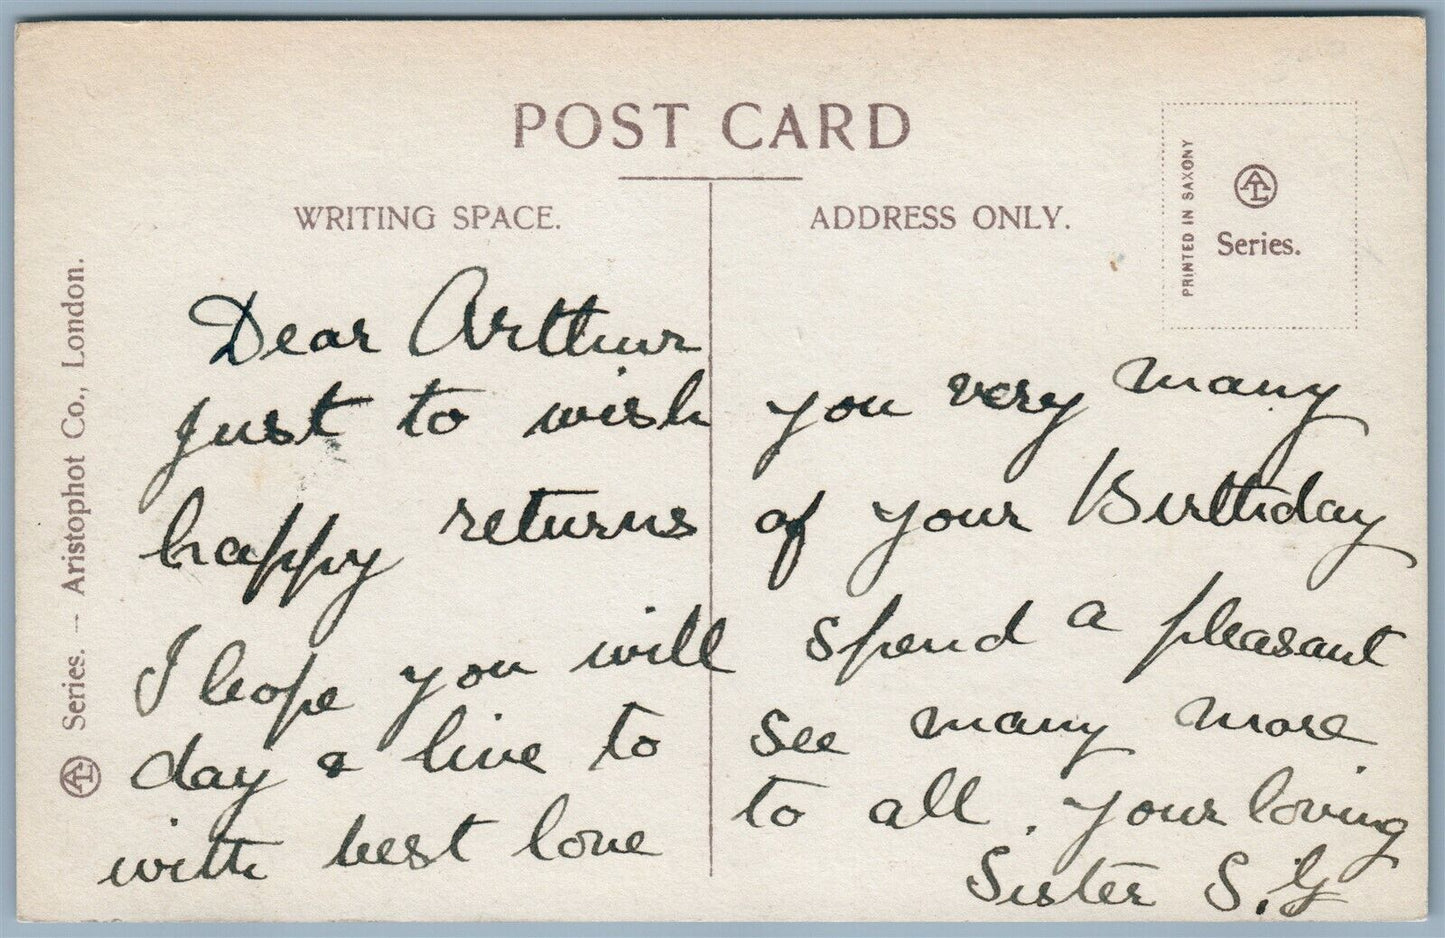 POST CARD
WRITING SPACE.
ADDRESS ONLY.
PRINTED IN SAXONY
Series.
Series. — Aristophot Co., London.
Dear Arthur
just to wish you very many
happy returns of your Birthday
I hope you will spend a pleasant
day & live to see many more
with best love to all. your loving
Sister S.